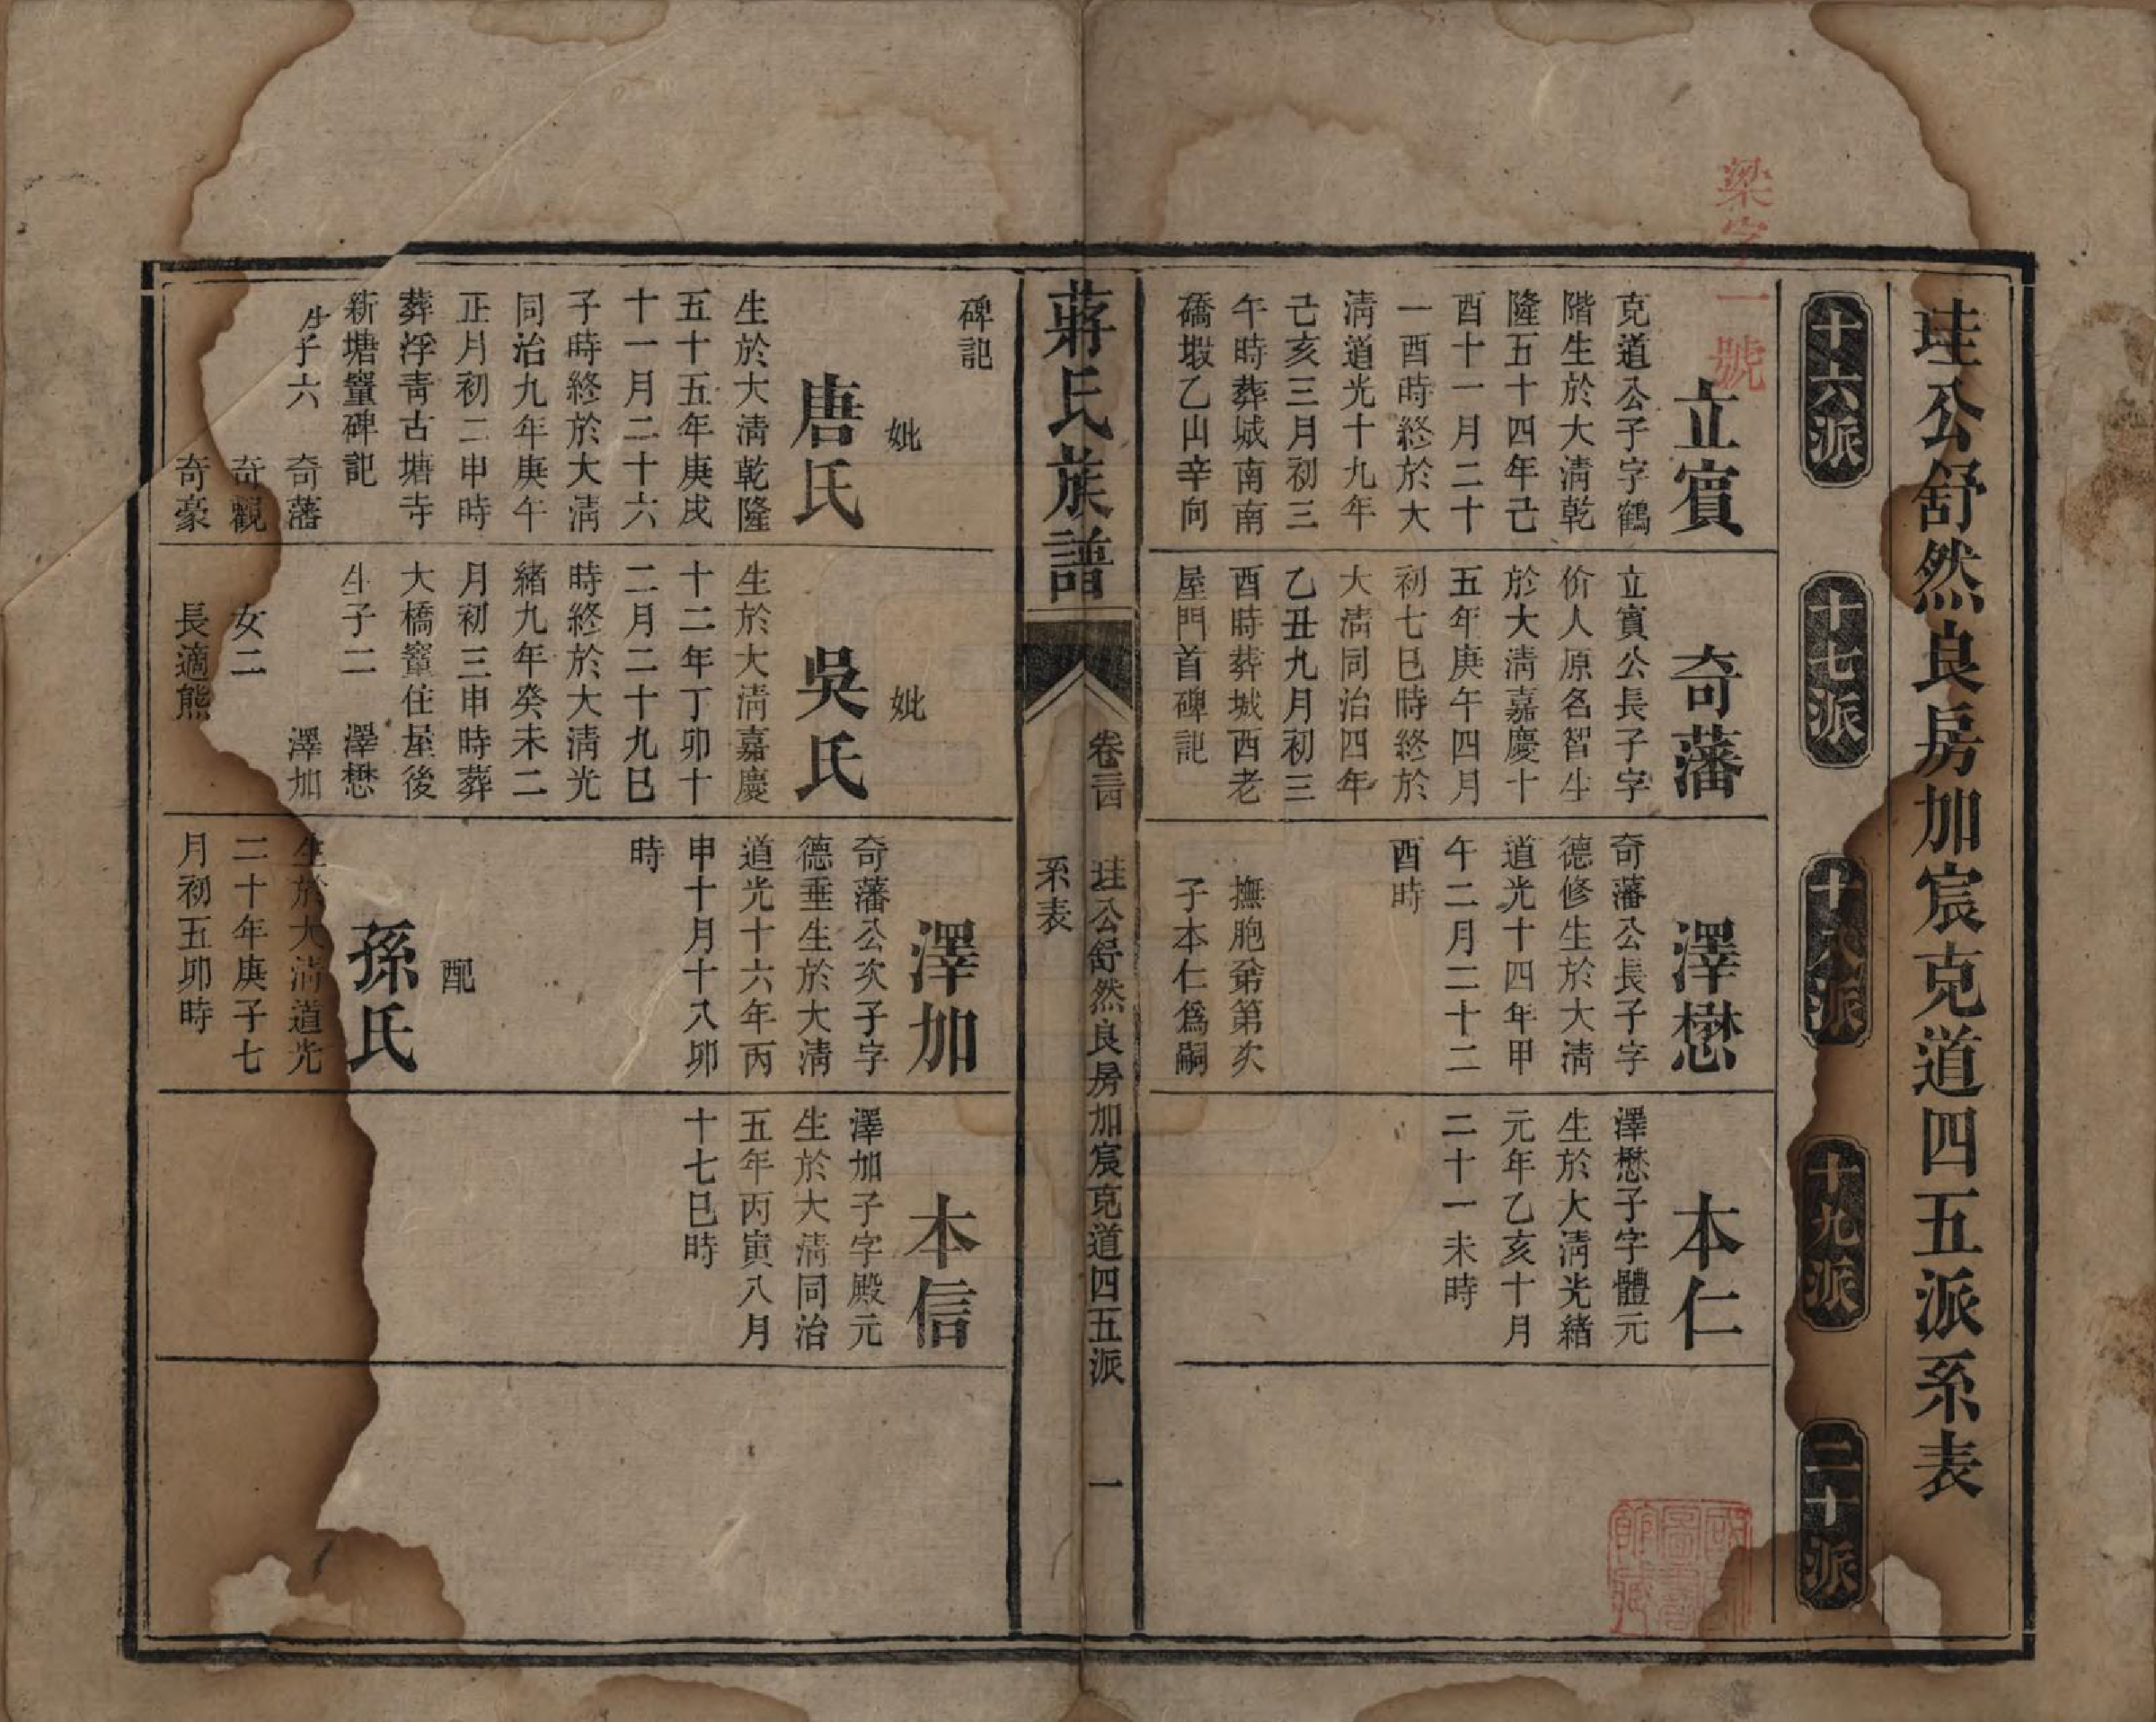 珪公舒然良房加宸克道四五派系表
十六派
十七派
十八派
十九派
二十派
梁字一號
立賓
克道公子字鶴
階生於大淸乾
隆五十四年己
酉十一月二十
一酉時終於大
淸道光十九年
己亥三月初三
午時葬城南南
礄塅乙山辛向
碑記
妣
唐氏
生於大淸乾隆
五十五年庚戌
十一月二十六
子時終於大淸
同治九年庚午
正月初二申時
葬浮靑古塘寺
新塘窻碑記
生子六 奇藩
奇觀
奇豪
奇藩
立賓公長子字
价人原名智生
於大淸嘉慶十
五年庚午四月
初七巳時終於
大淸同治四年
乙丑九月初三
酉時葬城西老
屋門首碑記
妣
吳氏
生於大淸嘉慶
十二年丁卯十
二月二十九巳
時終於大淸光
緒九年癸未二
月初三申時葬
大橋窻住屋後
生子二 澤懋
澤加
女二
長適熊
澤懋
奇藩公長子字
德修生於大淸
道光十四年甲
午二月二十二
酉時
撫胞弟第次
子本仁爲嗣
澤加
奇藩公次子字
德垂生於大淸
道光十六年丙
申十月十八卯
時
配
孫氏
生於大淸道光
二十年庚子七
月初五卯時
本仁
澤懋子字體元
生於大淸光緒
元年乙亥十月
二十一未時
本信
澤加子字殿元
生於大淸同治
五年丙寅八月
十七巳時
蔣氏族譜
卷三四
珪公舒然良房加宸克道四五派
系表
一